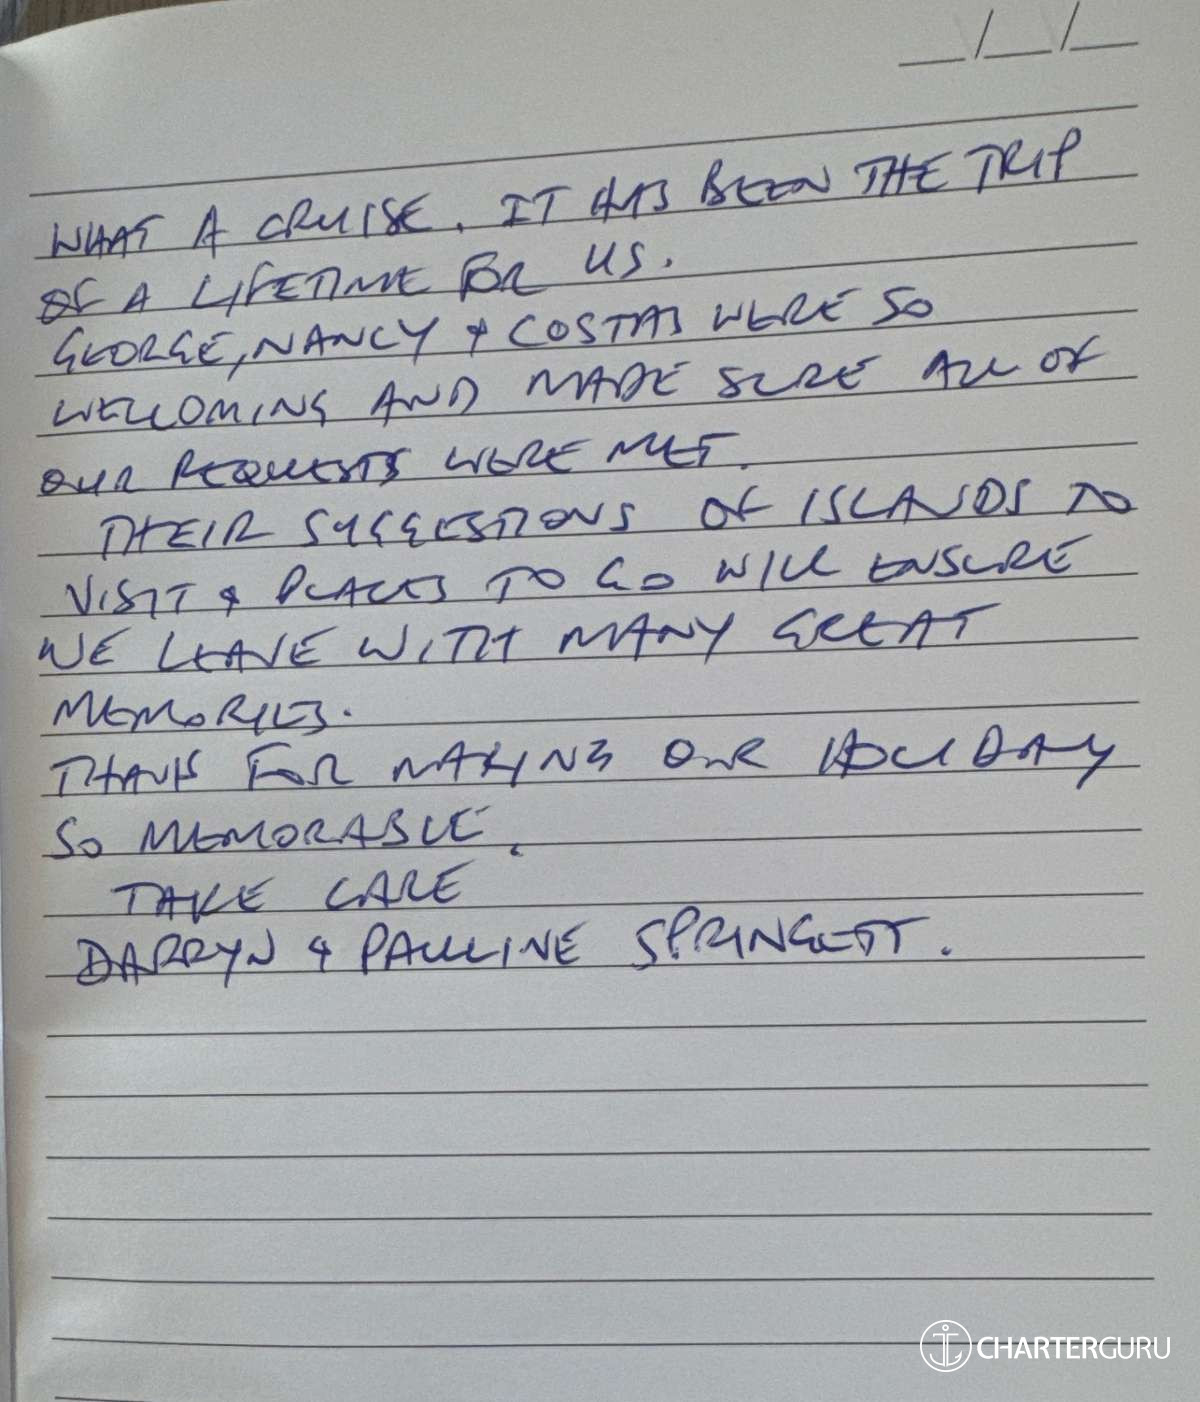 __/__/__
WHAT A CRUISE. IT HAS BEEN THE TRIP
OF A LIFETIME FOR US.
GEORGE, NANCY & COSTAS WERE SO
WELCOMING AND MADE SURE ALL OF
OUR REQUESTS WERE MET.
THEIR SUGGESTIONS OF ISLANDS TO
VISIT & PLACES TO GO WILL ENSURE
WE LEAVE WITH MANY GREAT
MEMORIES.
THANKS FOR MAKING OUR HOLIDAY
SO MEMORABLE.
TAKE CARE
DARRYN & PAULINE SPRINGETT.
CHARTERGURU